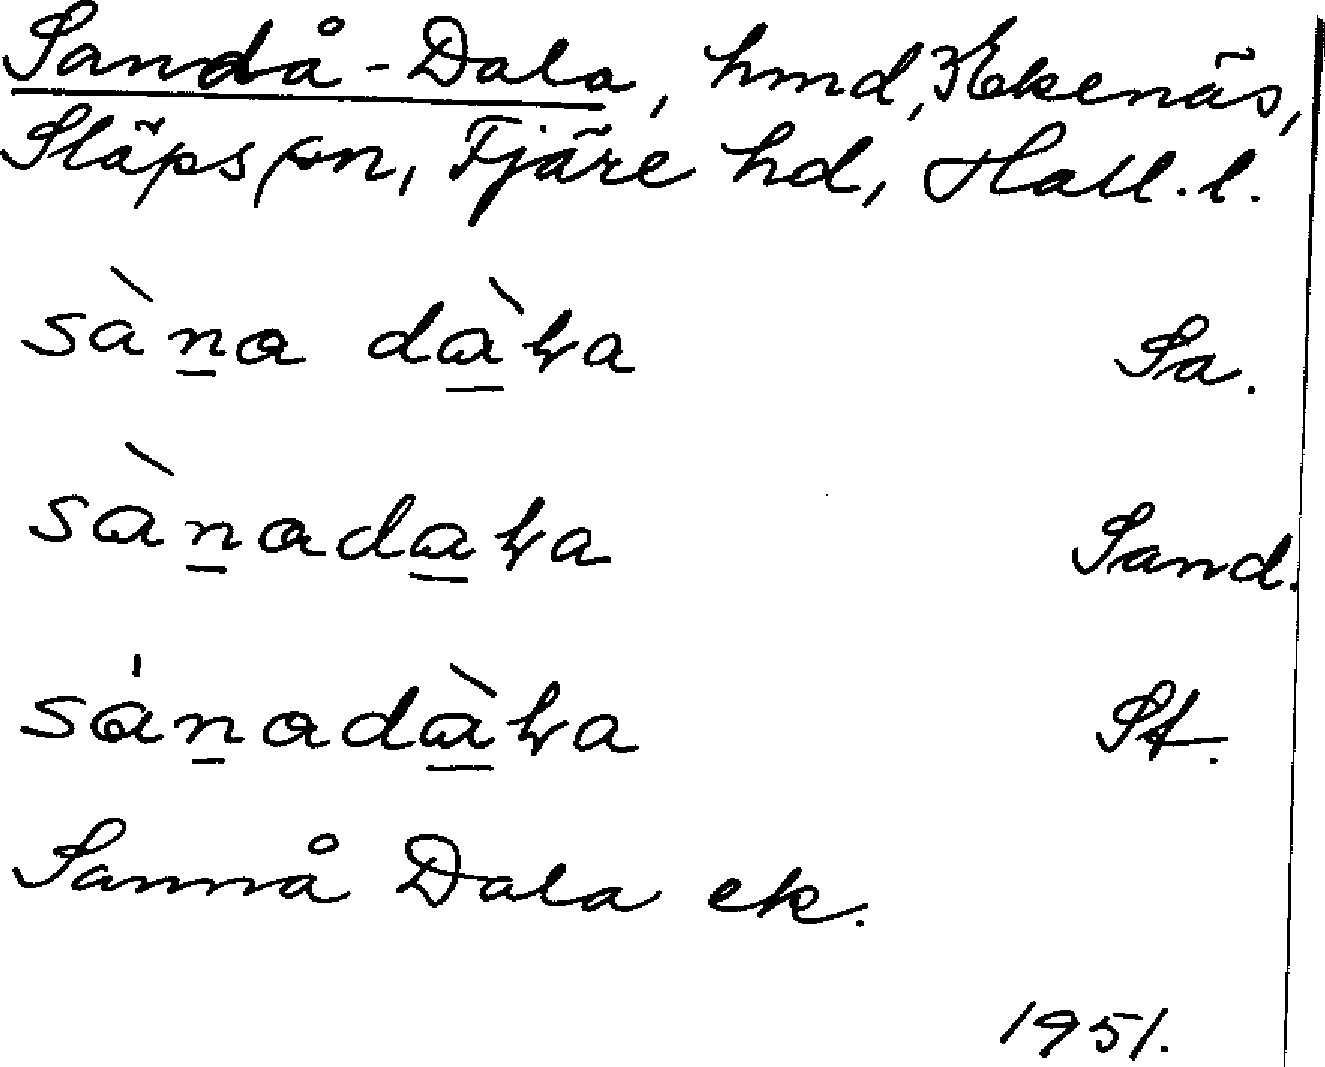 Sandå-Dala, hmd, Ekenäs,
Släps sn, Fjäre hd, Hall. l.
sàna dàɫa Sa.
sànadaɫa Sand.
sánadàɫa St.
Sannå Dala ek.
1951.